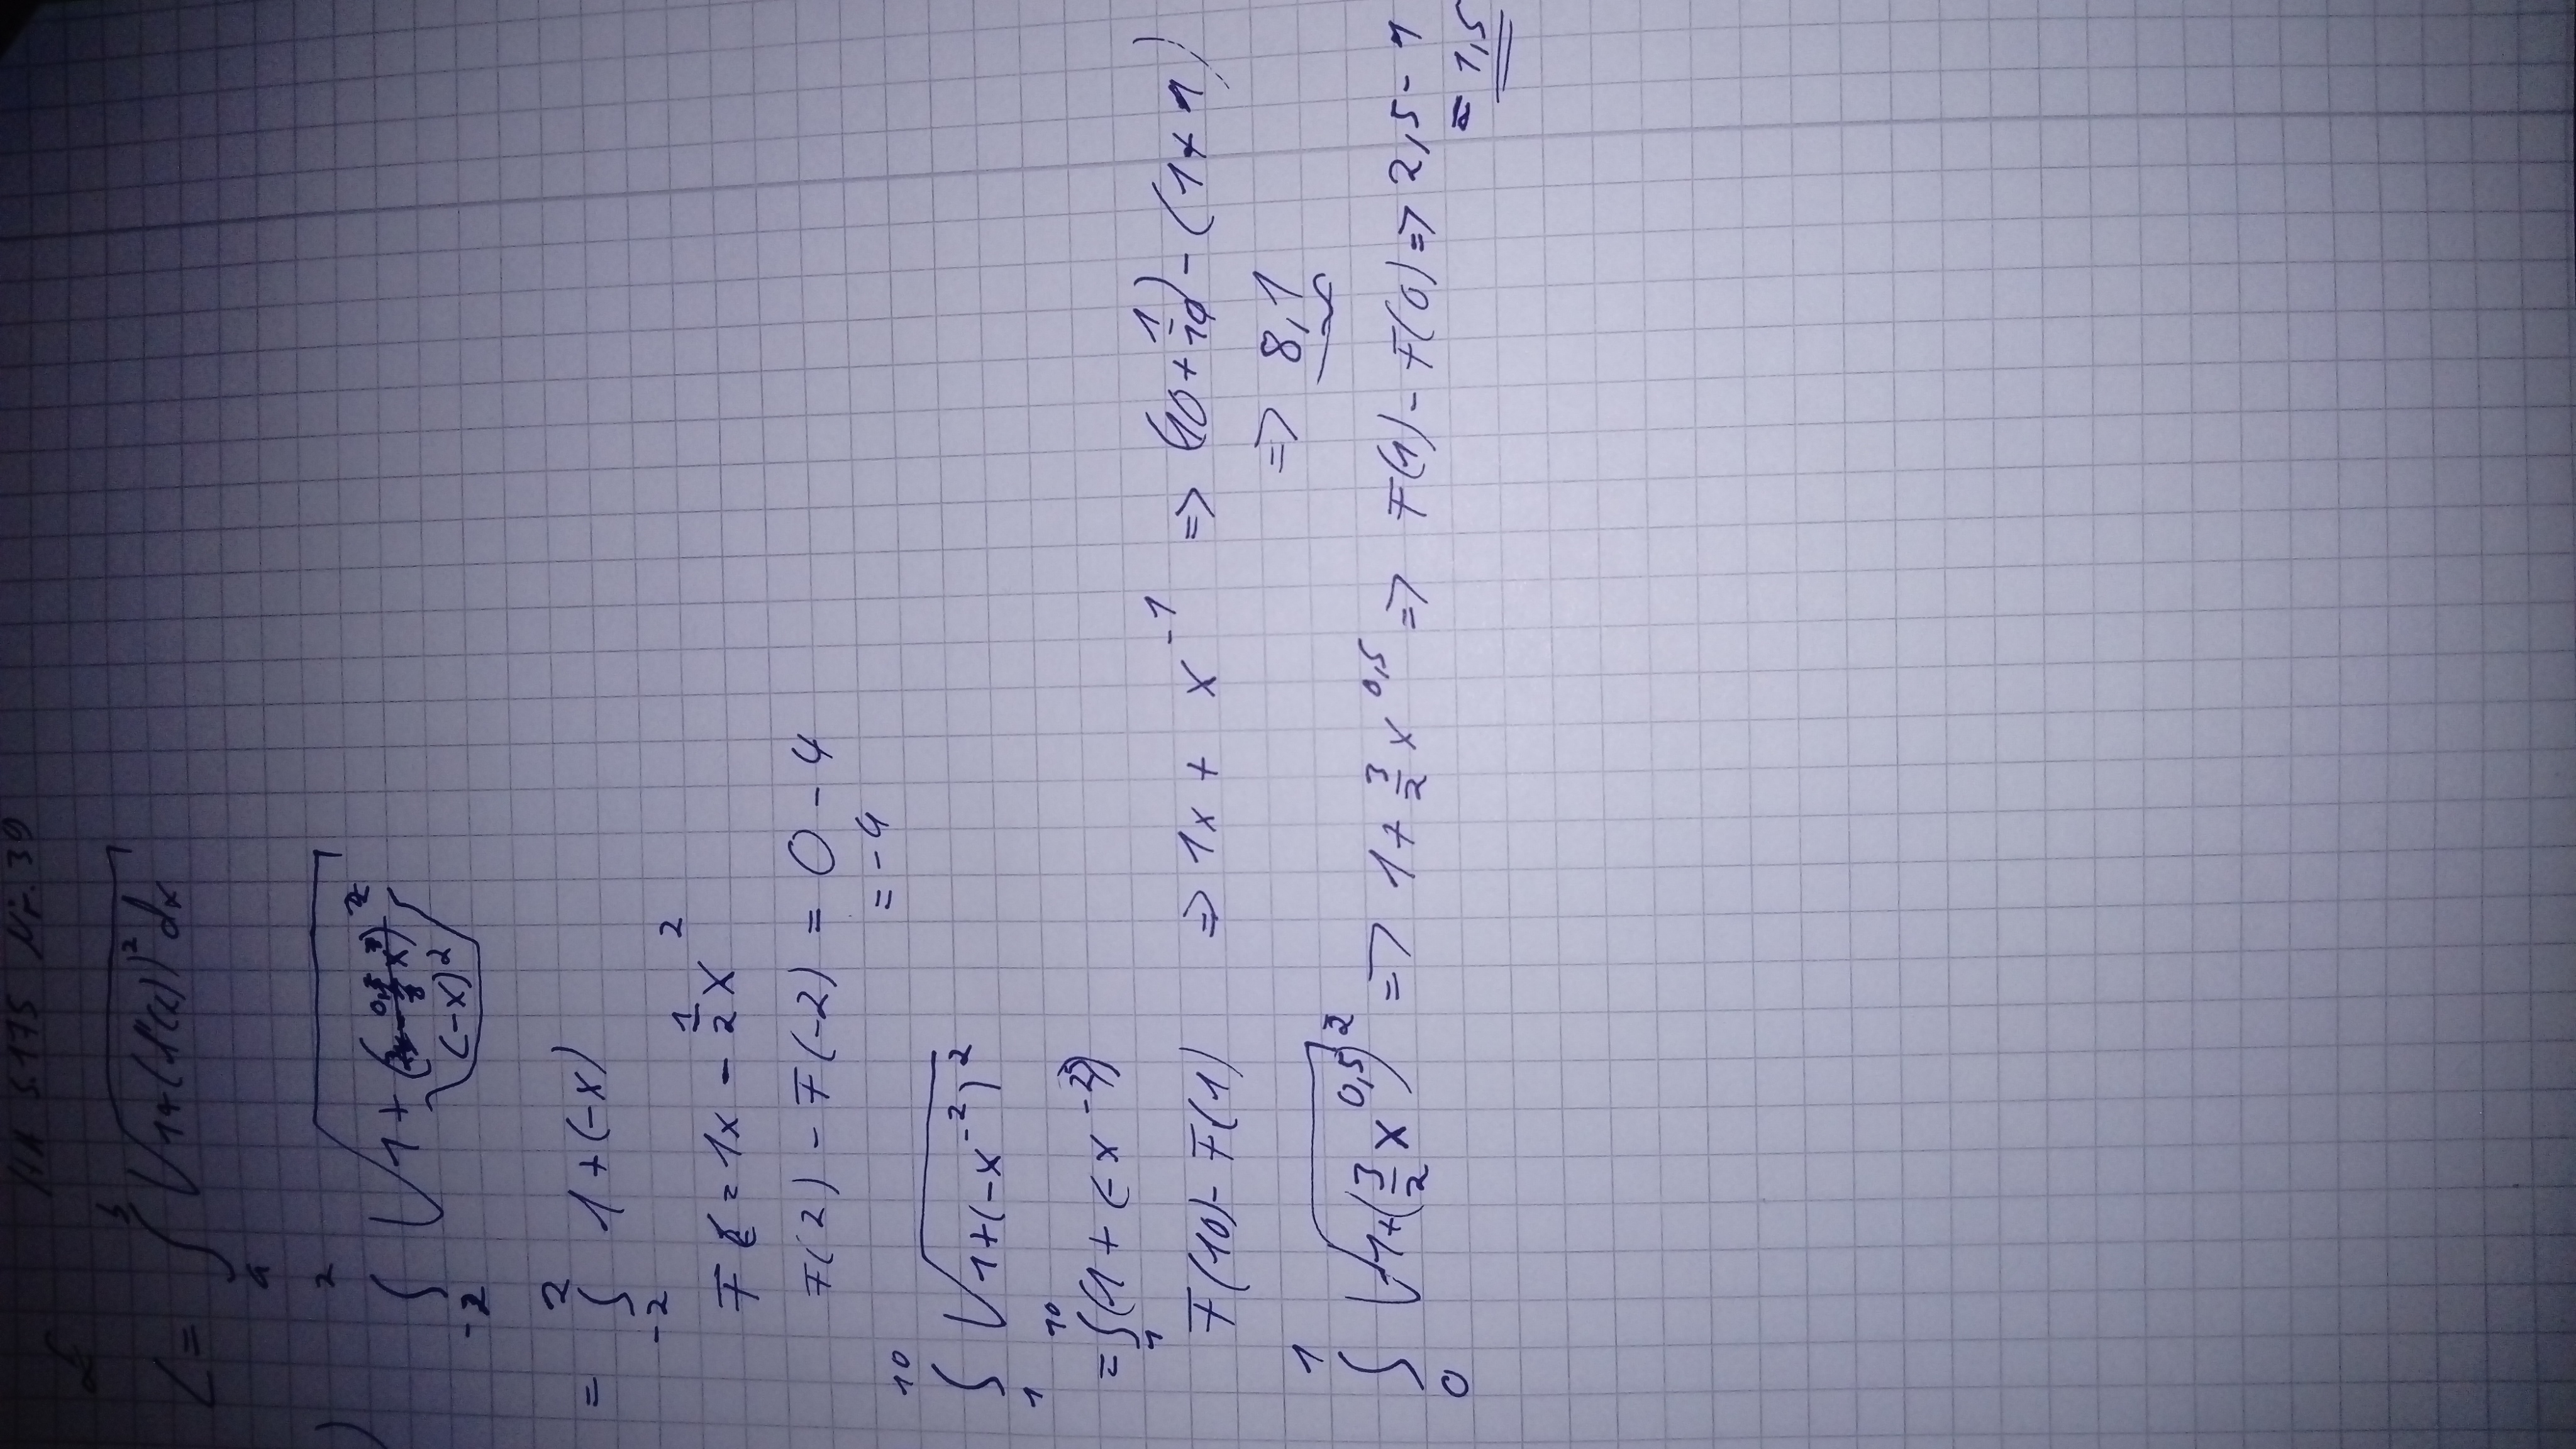 HA S.175 Nr. 39
L = ∫_a^b √(1+(f'(x))² dx
∫_-2^2 √(1+(-x)²
= ∫_-2^2 1+(-x)
F = 1x - 1/2 x²
F(2) - F(-2) = 0 - 4
= -4
∫_1^10 √(1+(-x^-2)²
= ∫_1^10 (1 + (-x^-2)
F(10) - F(1) => 1x + x^-1 => (10 + 1/10) - (1+1)
=> 8,1
∫_0^1 √(1+(3/2 x^0,5)² => 1 + 3/2 x^0,5 => F(1) - F(0) => 2,5 - 1
= 1,5